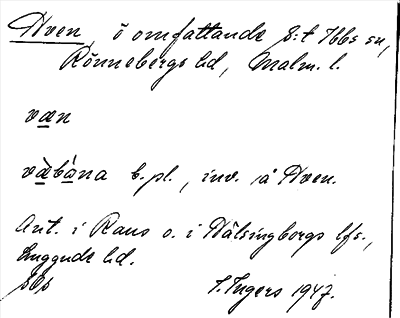 Hven, ö omfattande S:t Ibbs sn,
Rönnebergs hd, Malm. l.
væn
væ̀bána b. pl., inv. å Hven.
Ant. i Raus o. i Hälsingborgs lfs.,
Luggude hd.
I. Ingers 1947.